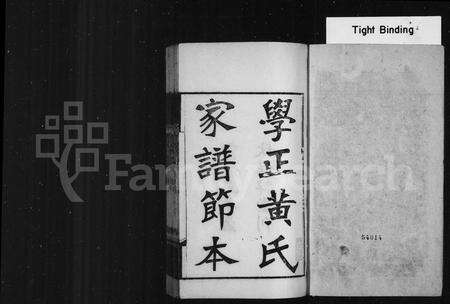 Tight Binding
學正黃氏
家譜節本
FamilySearch
54014